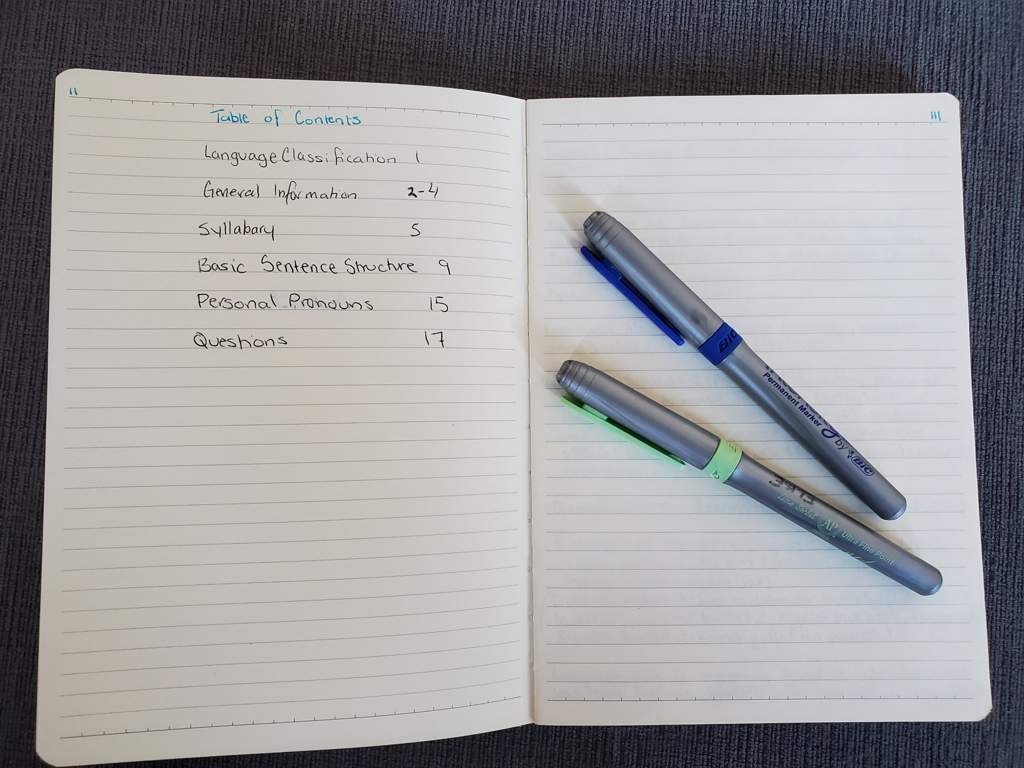 11
Table of Contents
Language Classification 1
General Information 2-4
Syllabary 5
Basic Sentence Structure 9
Personal Pronouns 15
Questions 17
111
BIC
Permanent Marker
by BIC
AP
Ultra Fine Point